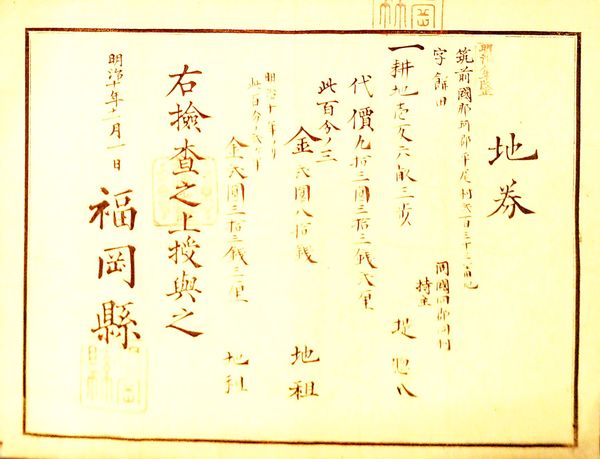 地券
筑前國那珂郡平尾村
字餅田
同國同郡同村
持主
一耕地壱反六畝三歩
堤 八
代價九拾三圓三拾三銭弐厘
此百分ノ三
金弐圓八拾銭 地租
明治十年ヨリ
此百分ノ弐ケ半
金弐圓三拾三銭三厘 地租
右撿查之上授與之
明治十年 月一日
福岡縣